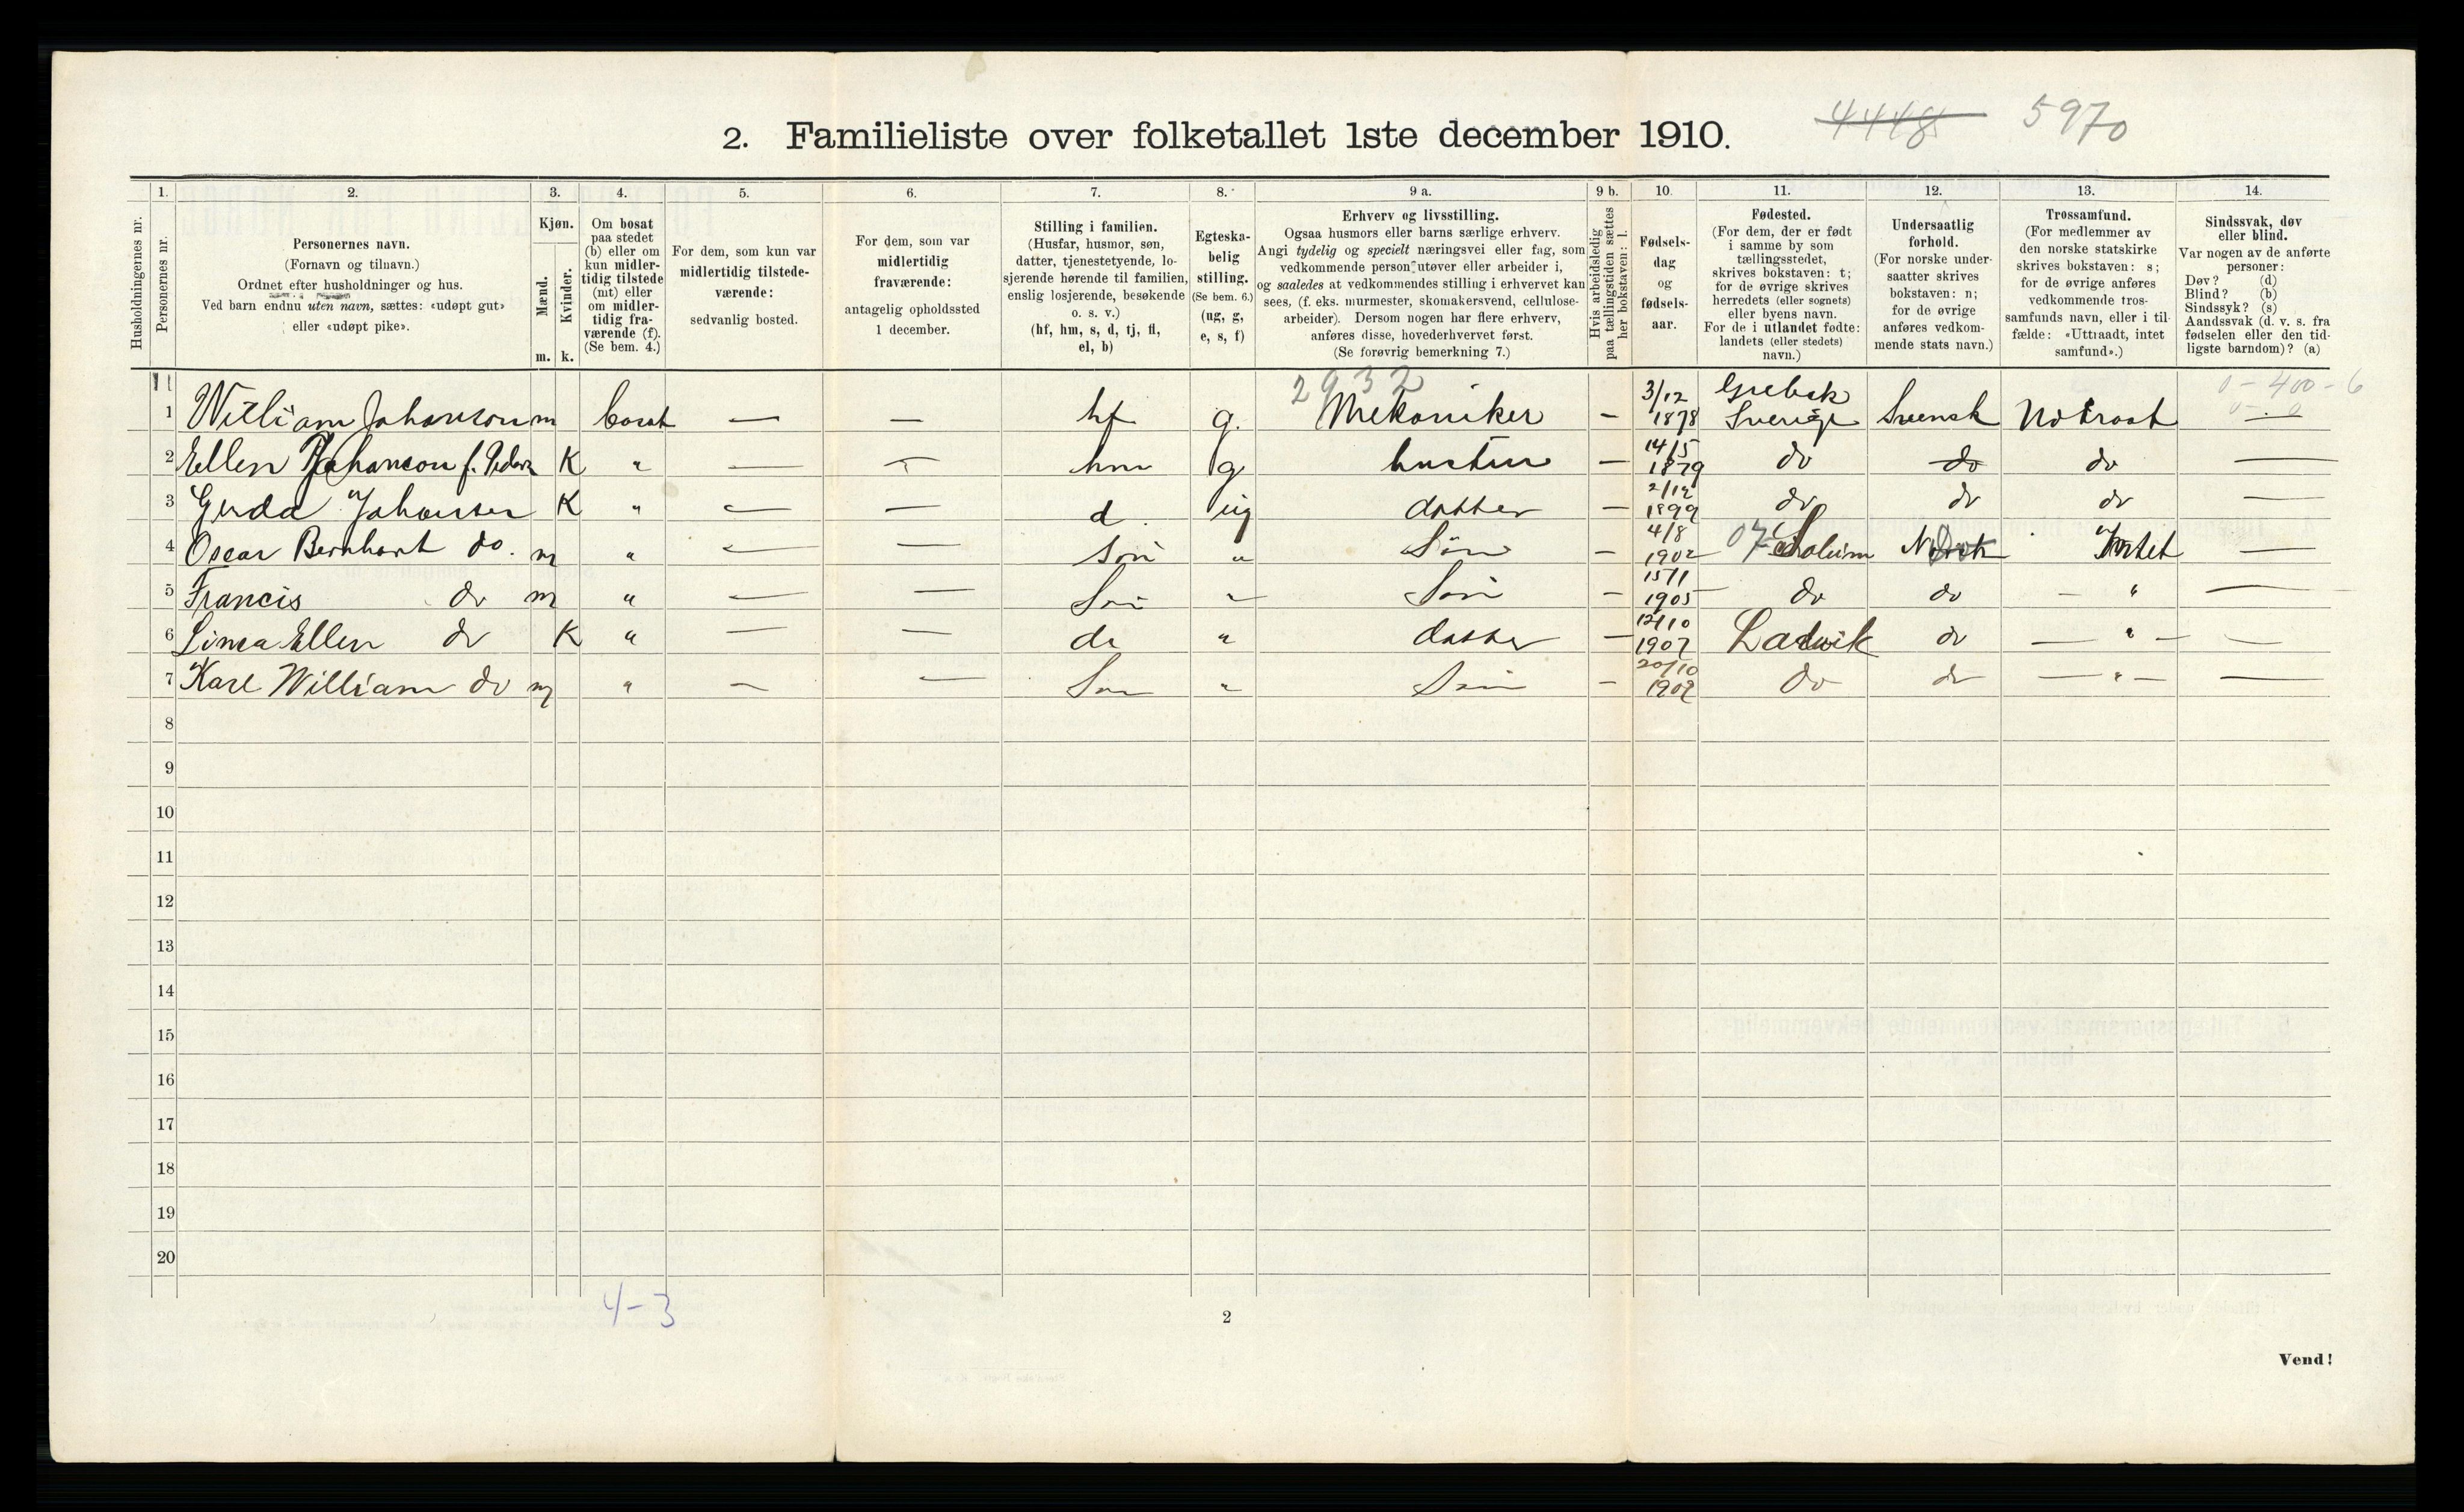 2. Familieliste over folketallet 1ste december 1910.
4448 5970
1. 2. 3. 4. 5. 6. 7. 8. 9 a. 9 b. 10. 11. 12. 13. 14.
Husholdningernes nr.
Personernes nr.
Personernes navn.
(Fornavn og tilnavn.)
Ordnet efter husholdninger og hus.
Ved barn endnu uten navn, sættes: «udøpt gut»
eller «udøpt pike».
Kjøn.
Mænd.
Kvinder.
m. k.
Om bosat
paa stedet
(b) eller om
kun midler-
tidig tilstede
(mt) eller
om midler-
tidig fra-
værende (f).
(Se bem. 4.)
For dem, som kun var
midlertidig tilstede-
værende:
sedvanlig bosted.
For dem, som var
midlertidig
fraværende:
antagelig opholdssted
1 december.
Stilling i familien.
(Husfar, husmor, søn,
datter, tjenestetyende, lo-
sjerende hørende til familien,
enslig losjerende, besøkende
o. s. v.)
(hf, hm, s, d, tj, fl,
el, b)
Egteska-
belig
stilling.
(Se bem. 6.)
(ug, g,
e, s, f)
Erhverv og livsstilling.
Ogsaa husmors eller barns særlige erhverv.
Angi tydelig og specielt næringsvei eller fag, som
vedkommende person utøver eller arbeider i,
og saaledes at vedkommendes stilling i erhvervet kan
sees, (f. eks. murmester, skomakersvend, cellulose-
arbeider). Dersom nogen har flere erhverv,
anføres disse, hovederhvervet først.
(Se forøvrig bemerkning 7.)
Hvis arbeidsledig
paa tællingstiden sættes
her bokstaven: l.
Fødsels-
dag
og
fødsels-
aar.
Fødested.
(For dem, der er født
i samme by som
tællingsstedet,
skrives bokstaven: t;
for de øvrige skrives
herredets (eller sognets)
eller byens navn.
For de i utlandet fødte:
landets (eller stedets)
navn.)
Undersaatlig
forhold.
(For norske under-
saatter skrives
bokstaven: n;
for de øvrige
anføres vedkom-
mende stats navn.)
Trossamfund.
(For medlemmer av
den norske statskirke
skrives bokstaven: s;
for de øvrige anføres
vedkommende tros-
samfunds navn, eller i til-
fælde: «Uttraadt, intet
samfund».)
Sindssvak, døv
eller blind.
Var nogen av de anførte
personer:
Døv? (d)
Blind? (b)
Sindssyk? (s)
Aandssvak (d. v. s. fra
fødselen eller den tid-
ligste barndom)? (a)
2932 3/12 0-400-6
1 William Johanson m bosat — — hf g. Mekaniker — 1878 Sverige Svensk —
14/5
2 Ellen Johanson f. K " — — hm g hustru — 1879 do do do —
2/12
3 Gerda Johansen K " — — d. ug datter — 1899 do do do —
4/8
4 Oscar Bernhart do. m " — — Søn " Søn — 1902 07 Solum Norsk Intet —
15/1
5 Francis do m " — — Søn " Søn — 1905 do do — " —
12/10
6 Ellen do K " — — " datter — 1907 do — " — —
20/10
7 Karl William do m " — — Søn " Søn — 1909 do do — " — —
8
9
10
11
12
13
14
15
16
17
18
19
20
4-3
2
Vend!